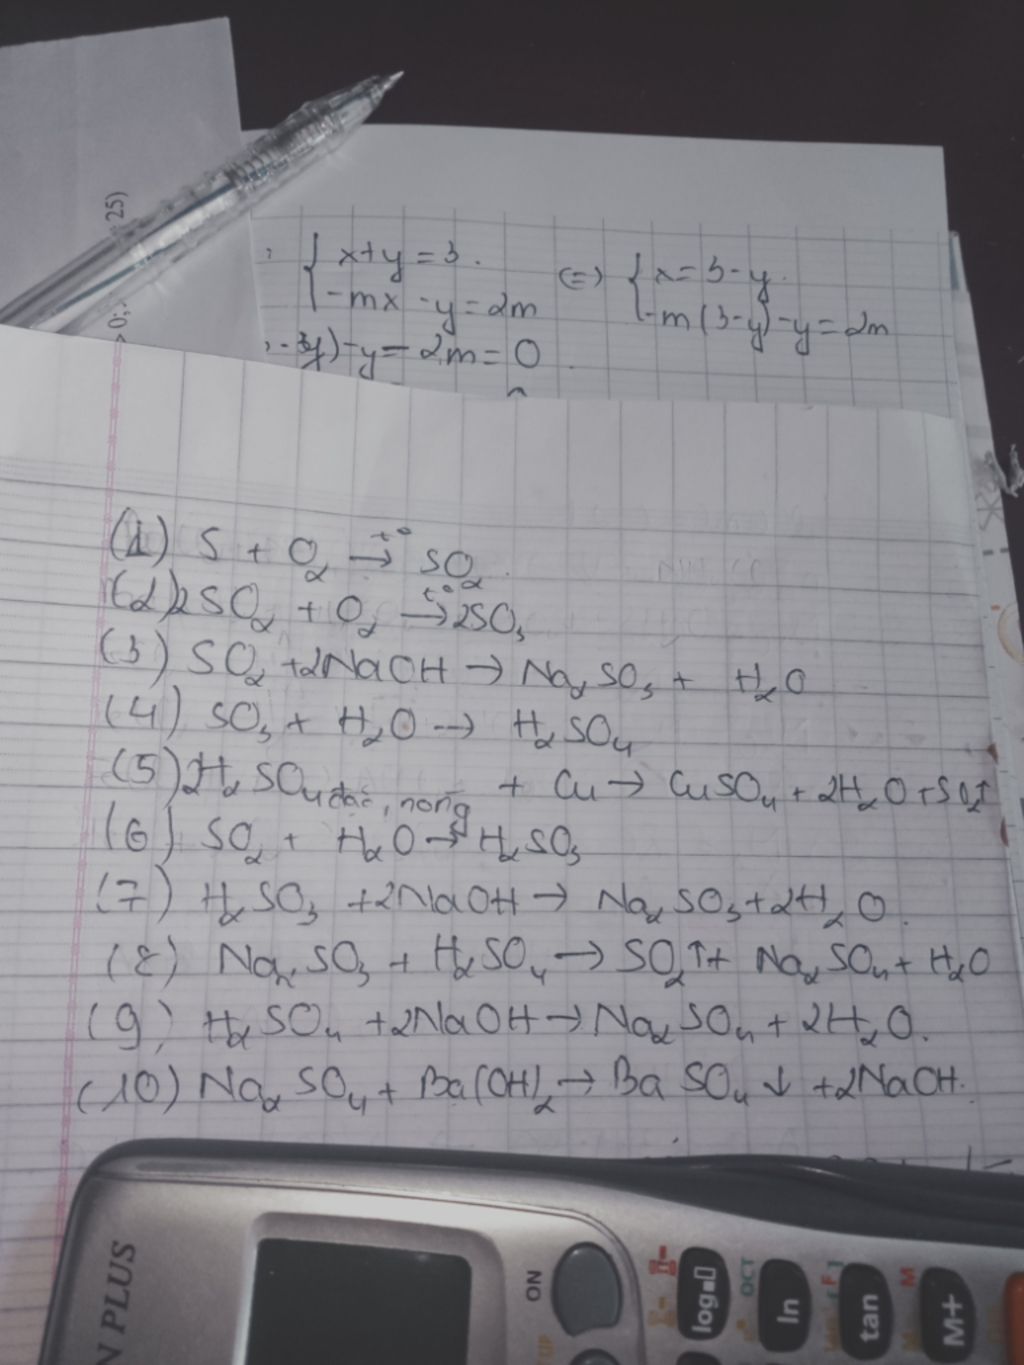 25)
0;
{ x+y=3. (=) { x=3-y.
-mx -y=2m -m(3-y)-y=2m
-3y)-y= 2m=0
(1) S + O₂ →t° SO₂
(2) 2SO₂ + O₂ →t° 2SO₃
(3) SO₂ +2NaOH → Na₂SO₃ + H₂O
(4) SO₃ + H₂O → H₂SO₄
(5) 2H₂SO₄ đặc, nóng + Cu → CuSO₄ + 2H₂O + SO₂↑
(6) SO₂ + H₂O → H₂SO₃
(7) H₂SO₃ +2NaOH → Na₂SO₃+2H₂O.
(8) Na₂SO₃ + H₂SO₄ → SO₂↑+ Na₂SO₄ + H₂O
(9) H₂SO₄ +2NaOH → Na₂SO₄ + 2H₂O.
(10) Na₂SO₄ + Ba(OH)₂ → BaSO₄ ↓ +2NaOH.
N PLUS
ON
OCT
M
log
ln
tan
M+